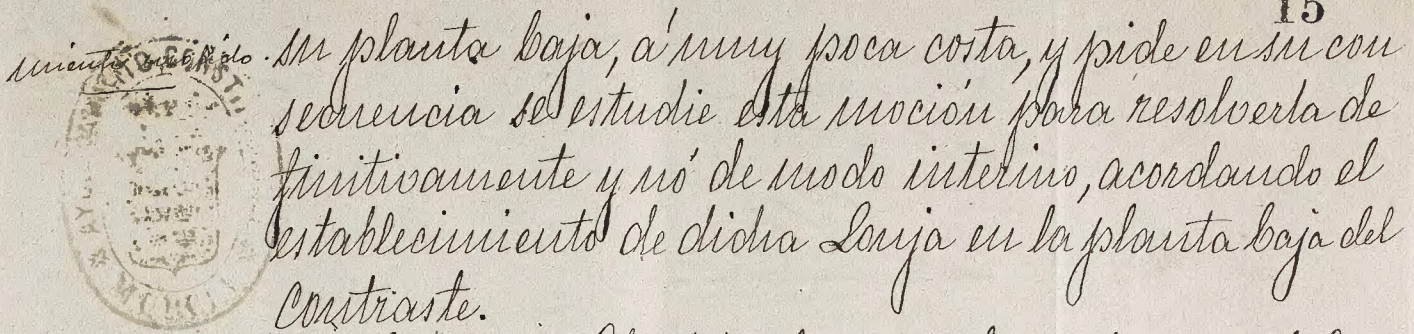 15
miento
su planta baja, á muy poca costa, y pide en su con
secuencia se estudie esta moción para resolverla de
finitivamente y nó de modo interino, acordando el
establecimiento de dicha Lonja en la planta baja del
Contraste.
MURCIA